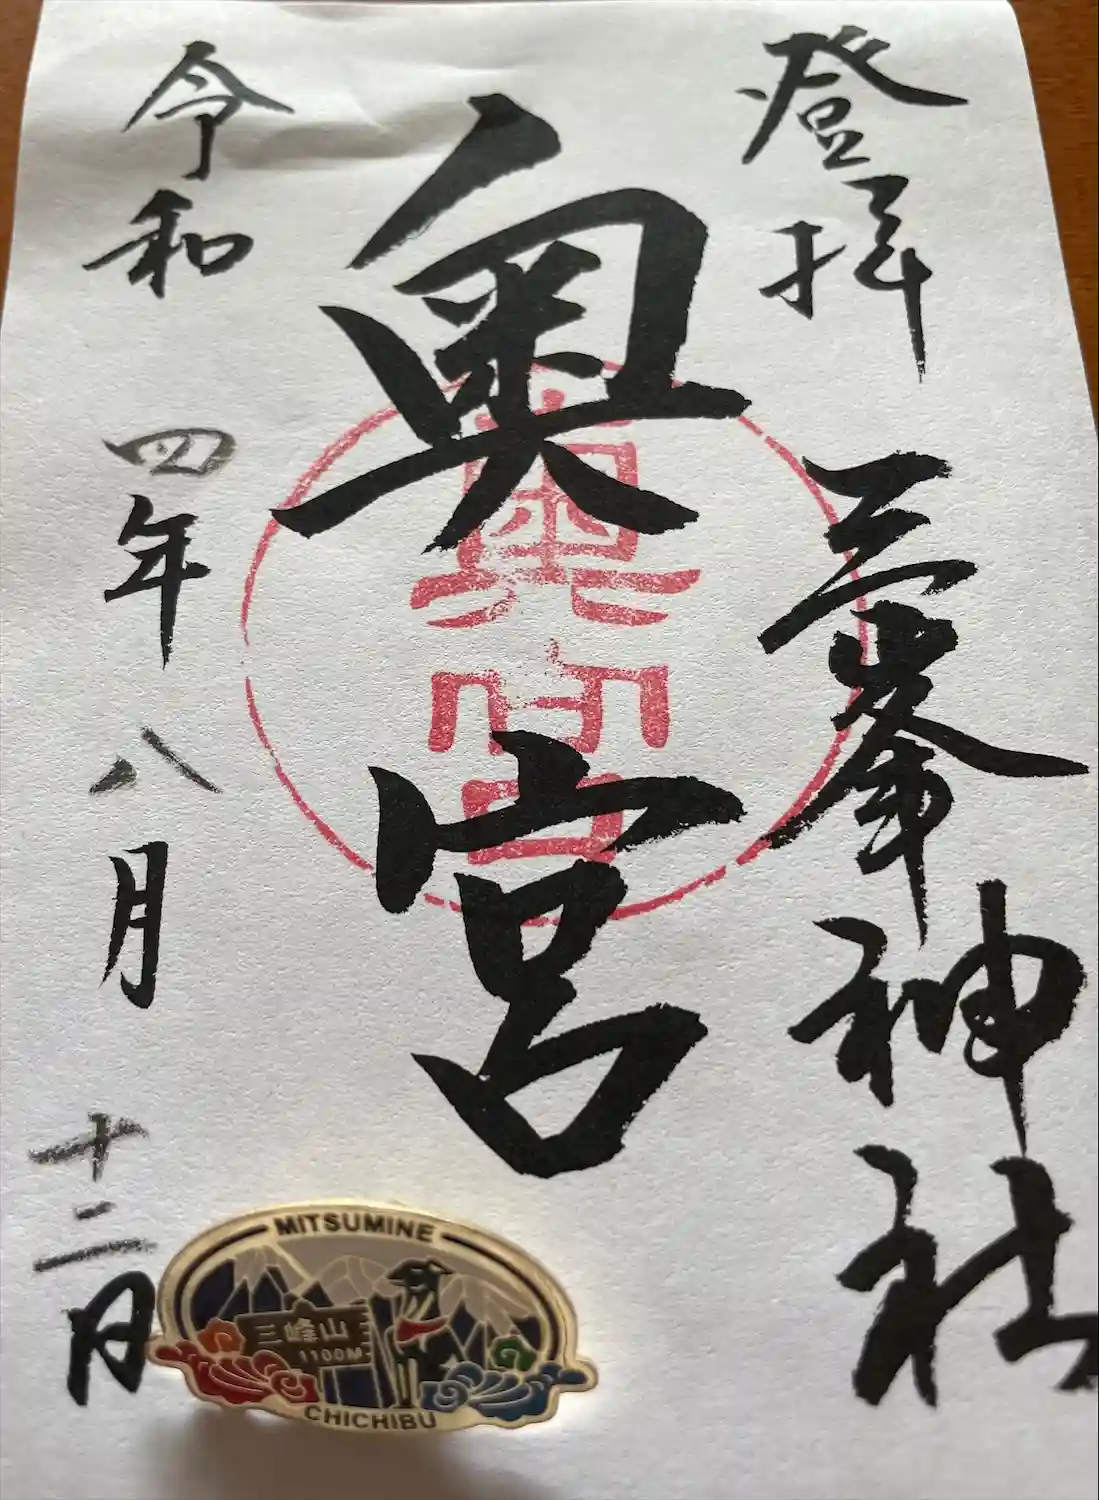 登拝
三峯神社
奥宮
奥宮
令和四年八月十二日
MITSUMINE
三峰山
1100M
CHICHIBU